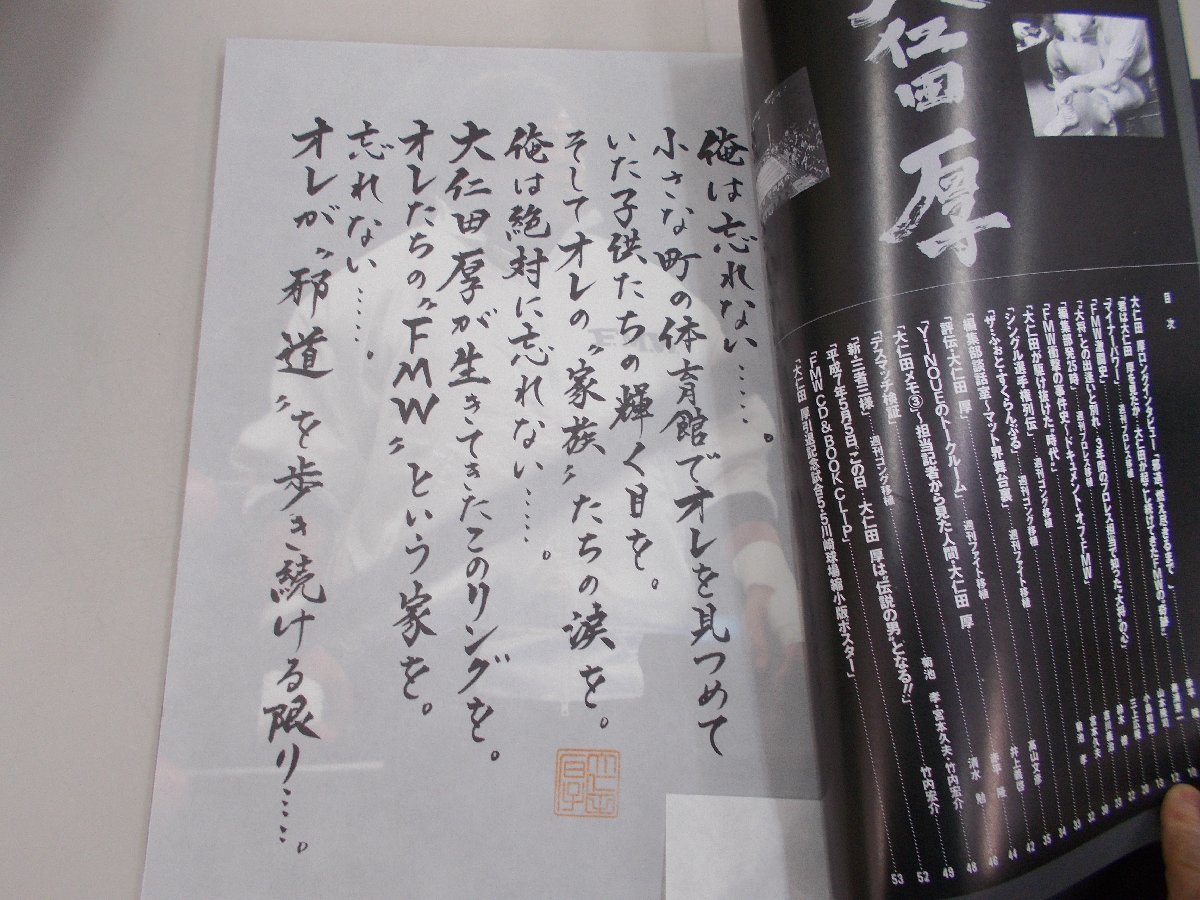 大仁田 厚
目次
大仁田 厚ロングインタビュー「邪道、燃え尽きるまで。」
「マイナーパワー」 週刊プロレス移植
「FMW激闘史」
「編集部発25時」 週刊プロレス移植
「FMW衝撃の事件史〜ドキュメント・オブ・FMW」
「大仁田が駆け抜けた“時代”」
「シングル選手権列伝」 週刊ゴング移植
「ザ・ふぉとすくらんぶる」 週刊ファイト移植
「編集部談話室〜マット界舞台裏」
「評伝・大仁田 厚」 週刊ファイト移植
「Y・INOUEのトークルーム」
「大仁田メモ③」〜担当記者から見た人間・大仁田 厚
「デスマッチ検証」 週刊ゴング移植
「新・三者三様」 菊池 孝・宮本久夫・竹内宏介
「平成7年5月5日、この日…大仁田 厚は“伝説の男”となる!!」 竹内宏介
「FMW CD&BOOK CLIP」
「大仁田 厚引退記念試合5・5川崎球場縮小版ポスター」
53
俺は忘れない……。
小さな町の体育館でオレを見つめて
いた子供たちの輝く目を。
そしてオレの〝家族〟たちの涙を。
俺は絶対に忘れない……。
大仁田厚が生きてきたこのリングを。
オレたちの〝FMW〟という家を。
忘れない……。
オレが〝邪道〟を歩き続ける限り……。